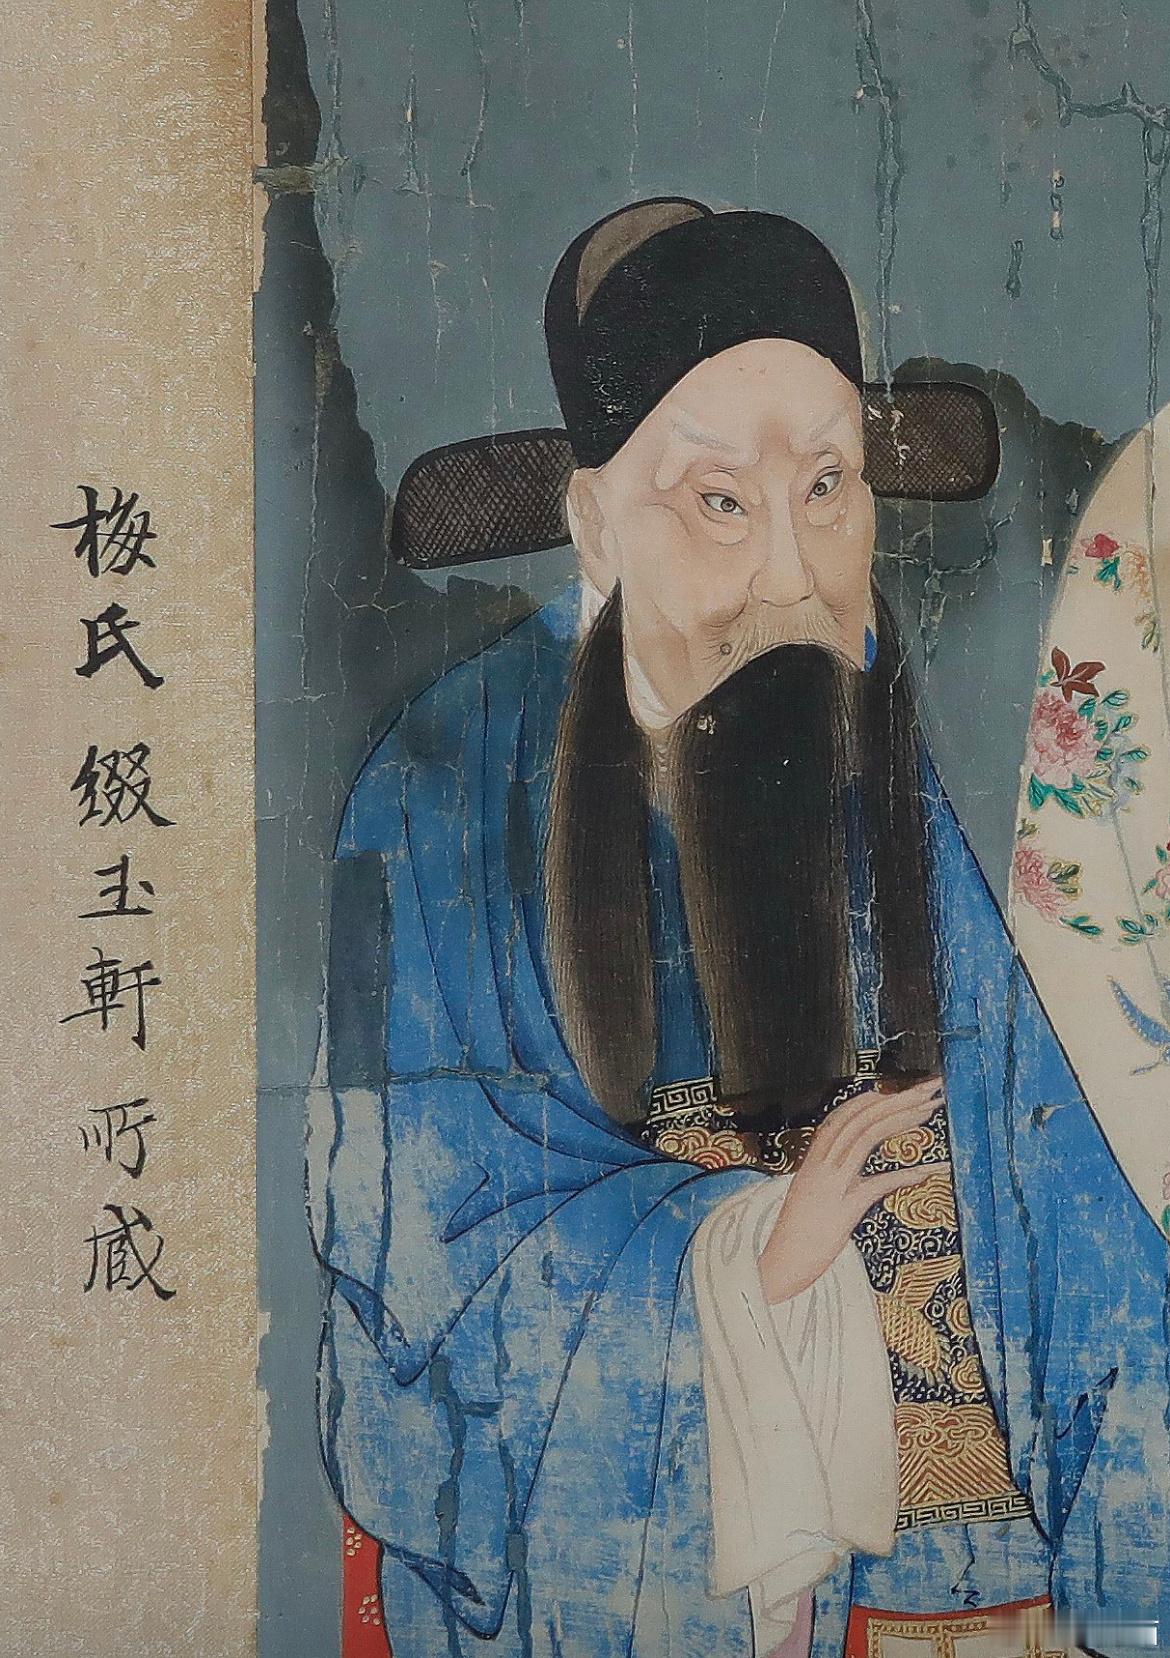 梅氏缀玉軒所藏